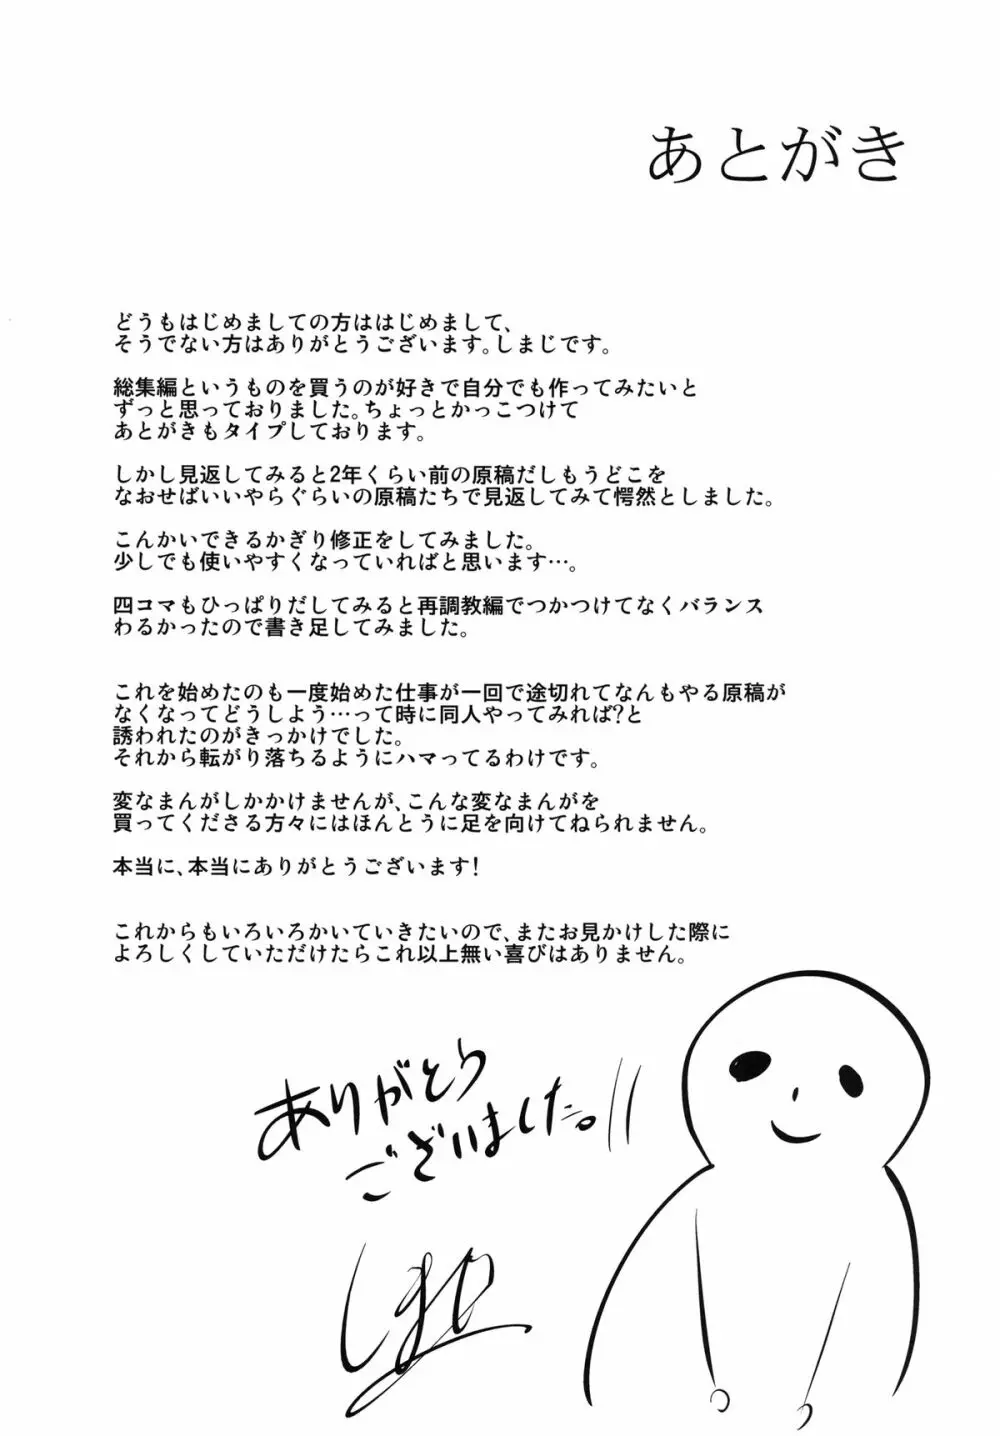 あとがき
どうもはじめましての方ははじめまして、
そうでない方はありがとうございます。しまじです。
総集編というものを買うのが好きで自分でも作ってみたいと
ずっと思っておりました。ちょっとかっこつけて
あとがきもタイプしております。
しかし見返してみると2年くらい前の原稿だしもうどこを
なおせばいいやらぐらいの原稿たちで見返してみて愕然としました。
こんかいできるかぎり修正をしてみました。
少しでも使いやすくなっていればと思います…。
四コマもひっぱりだしてみると再調教編でつかつけてなくバランス
わるかったので書き足してみました。
これを始めたのも一度始めた仕事が一回で途切れてなんもやる原稿が
なくなってどうしよう…って時に同人やってみれば?と
誘われたのがきっかけでした。
それから転がり落ちるようにハマってるわけです。
変なまんがしかかけませんが、こんな変なまんがを
買ってくださる方々にはほんとうに足を向けてねられません。
本当に、本当にありがとうございます!
これからもいろいろかいていきたいので、またお見かけした際に
よろしくしていただけたらこれ以上無い喜びはありません。
ありがとう
ございました。